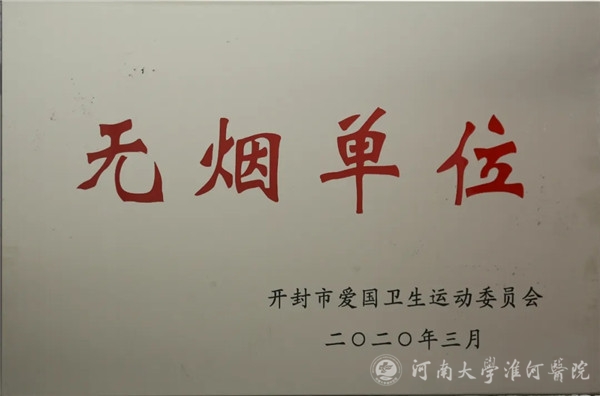 无烟单位
开封市爱国卫生运动委员会
二〇二〇年三月
河南大學淮河醫院